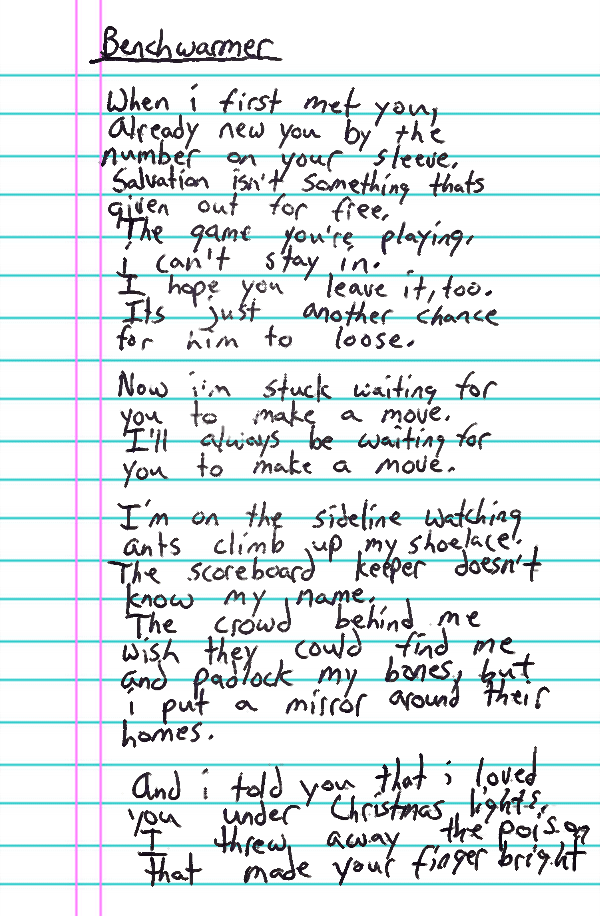 Benchwarmer
When i first met you,
Already new you by the
number on your sleeve.
Salvation isn't something thats
given out for free.
The game you're playing,
i can't stay in.
I hope you leave it, too.
Its just another chance
for him to loose.
Now i'm stuck waiting for
you to make a move.
I'll always be waiting for
you to make a move.
I'm on the sideline watching
ants climb up my shoelace.
The scoreboard keeper doesn't
know my name.
The crowd behind me
wish they could find me
and padlock my bones, but
i put a mirror around their
homes.
And i told you that i loved
you under Christmas lights,
I threw away the poison
that made your finger bright